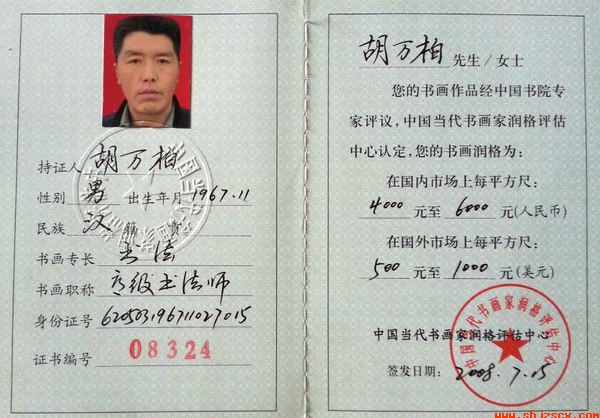 持证人 胡万柏
性别 男 出生年月 1967.11
民族 汉
书画专长 书法
书画职称 高级书法师
身份证号 620503196711027015
证书编号 08324
胡万柏 先生/女士
您的书画作品经中国书院专
家评议,中国当代书画家润格评估
中心认定,您的书画润格为:
在国内市场上每平方尺:
4000 元至 6000 元(人民币)
在国外市场上每平方尺:
500 元至 1000 元(美元)
中国当代书画家润格评估中心
中国当代书画家润格评估中心
签发日期: 2008.7.15